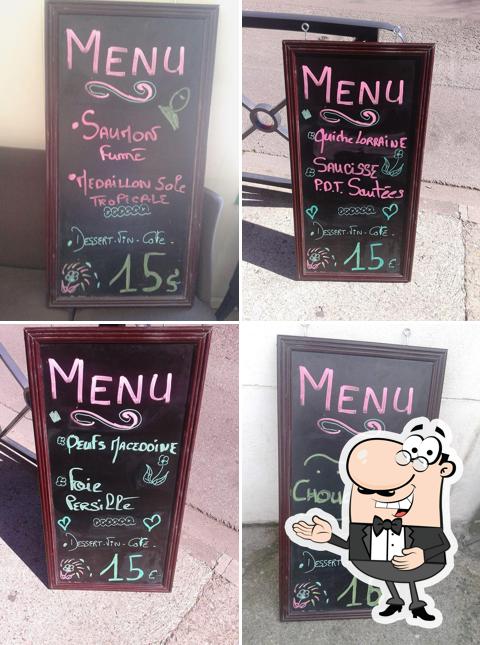 MENU
• SAUMON
FUMÉ
• MEDAILLON SOLE
TROPICALE
DESSERT-VIN-CAFÉ-
15€
MENU
QUICHE LORRAINE
SAUCISSE
P.D.T. SAUTÉES
DESSERT-VIN-CAFÉ-
15€
MENU
OEUFS MACEDOINE
FOIE
PERSILLÉ
DESSERT-VIN-CAFÉ-
15€
MENU
CHOU
DESSERT